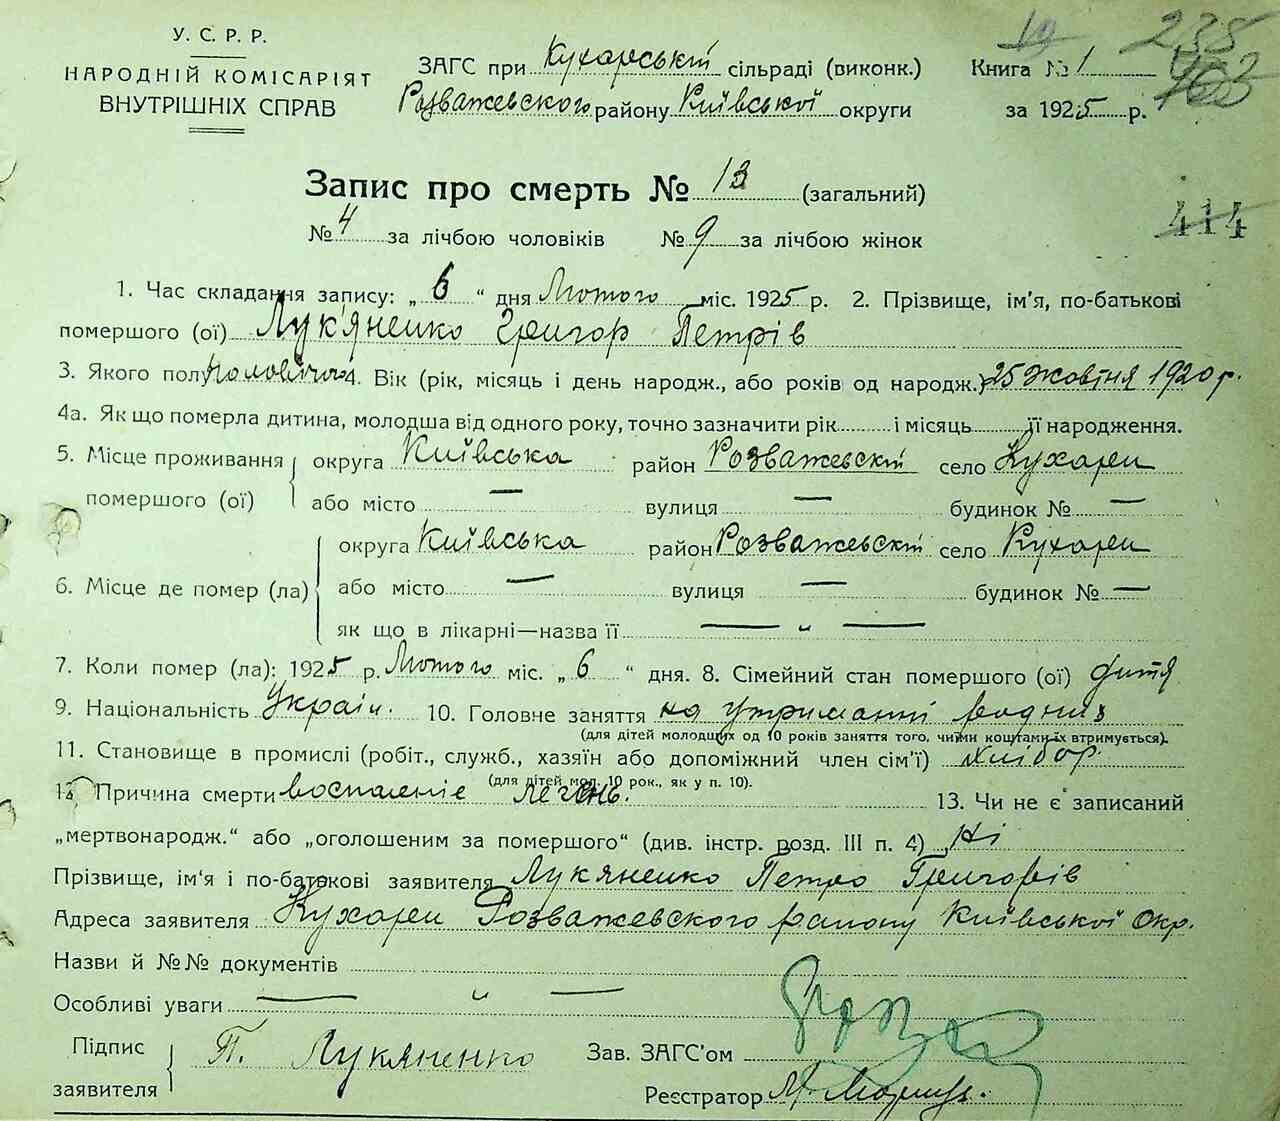 У. С. Р. Р.
НАРОДНІЙ КОМІСАРІЯТ
ВНУТРІШНІХ СПРАВ
ЗАГС при Кухарській сільраді (виконк.)
Розважевского району Київської округи
Книга № 1
за 1925 р.
19 235
163
414
Запис про смерть № 13 (загальний)
№ 4 за лічбою чоловіків № 9 за лічбою жінок
1. Час складання запису: „ 6 “ дня Лютого міс. 1925 р. 2. Прізвище, ім’я, по-батькові
помершого (ої) Лук'яненко Григор Петрів
3. Якого полу чоловічого 4. Вік (рік, місяць і день народж., або років од народж.) 25 жовтня 1920 р.
4а. Як що померла дитина, молодша від одного року, точно зазначити рік і місяць її народження.
5. Місце проживання округа Київська район Розважевскій село Кухари
помершого (ої) або місто — вулиця — будинок № —
округа Київська район Розважевскій село Кухари
6. Місце де помер (ла) або місто — вулиця — будинок № —
як що в лікарні—назва її — „ —
7. Коли помер (ла): 1925 р. Лютого міс. „ 6 “ дня. 8. Сімейний стан помершого (ої) дитя
9. Національність Україн. 10. Головне заняття на утриманні родних
(для дітей молодших од 10 років заняття того, чиїми коштами їх втримується).
11. Становище в промислі (робіт., служб., хазяїн або допоміжний член сім’ї) хлібор.
(для дітей мол. 10 рок., як у п. 10).
12. Причина смерти воспаленіє легень. 13. Чи не є записаний
„мертвонародж.“ або „оголошеним за помершого“ (див. інстр. розд. III п. 4) Ні
Прізвище, ім’я і по-батькові заявителя Лукяненко Петро Григорів
Адреса заявителя Кухари Розважевского району Київської Окр.
Назви й №№ документів
Особливі уваги — „ —
Підпис
заявителя П. Лукяненко
Зав. ЗАГС’ом
Реєстратор М.